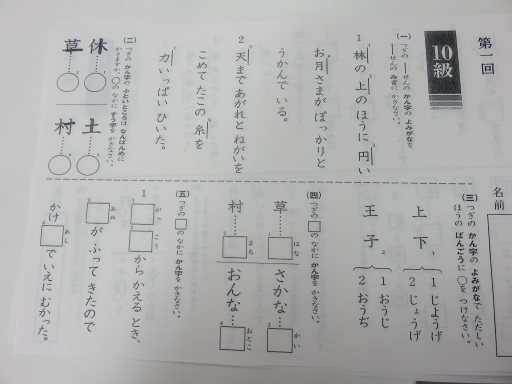 第一回
10級
名前
(一) つぎの―せんの かん字の よみがなを
―せんの みぎに かきなさい。
1 林の 上の ほうに 円い
お月さまが ぽっかりと
うかんで いる。
2 天まで あがれと ねがいを
こめて たこの 糸を
力いっぱい ひいた。
(二) つぎの かん字の ふといところは なんばんめに
かきますか。○の なかに すう字を かきなさい。
休
草
土
村
(三) つぎの かん字の よみがなで ただしい
ほうの ばんごうに ○を つけなさい。
上下 1
1 じょうげ
2 じょうげ
王子 2
1 おうじ
2 おうぢ
(四) つぎの□の なかに かん字を かきなさい。
草……はな
さかな……かい
村……まち
おんな……おとこ
(五) つぎの□の なかに かん字を かきなさい。
1 がっこう から かえる とき、
あめ が ふって きたので
かけあし で いえに むかった。